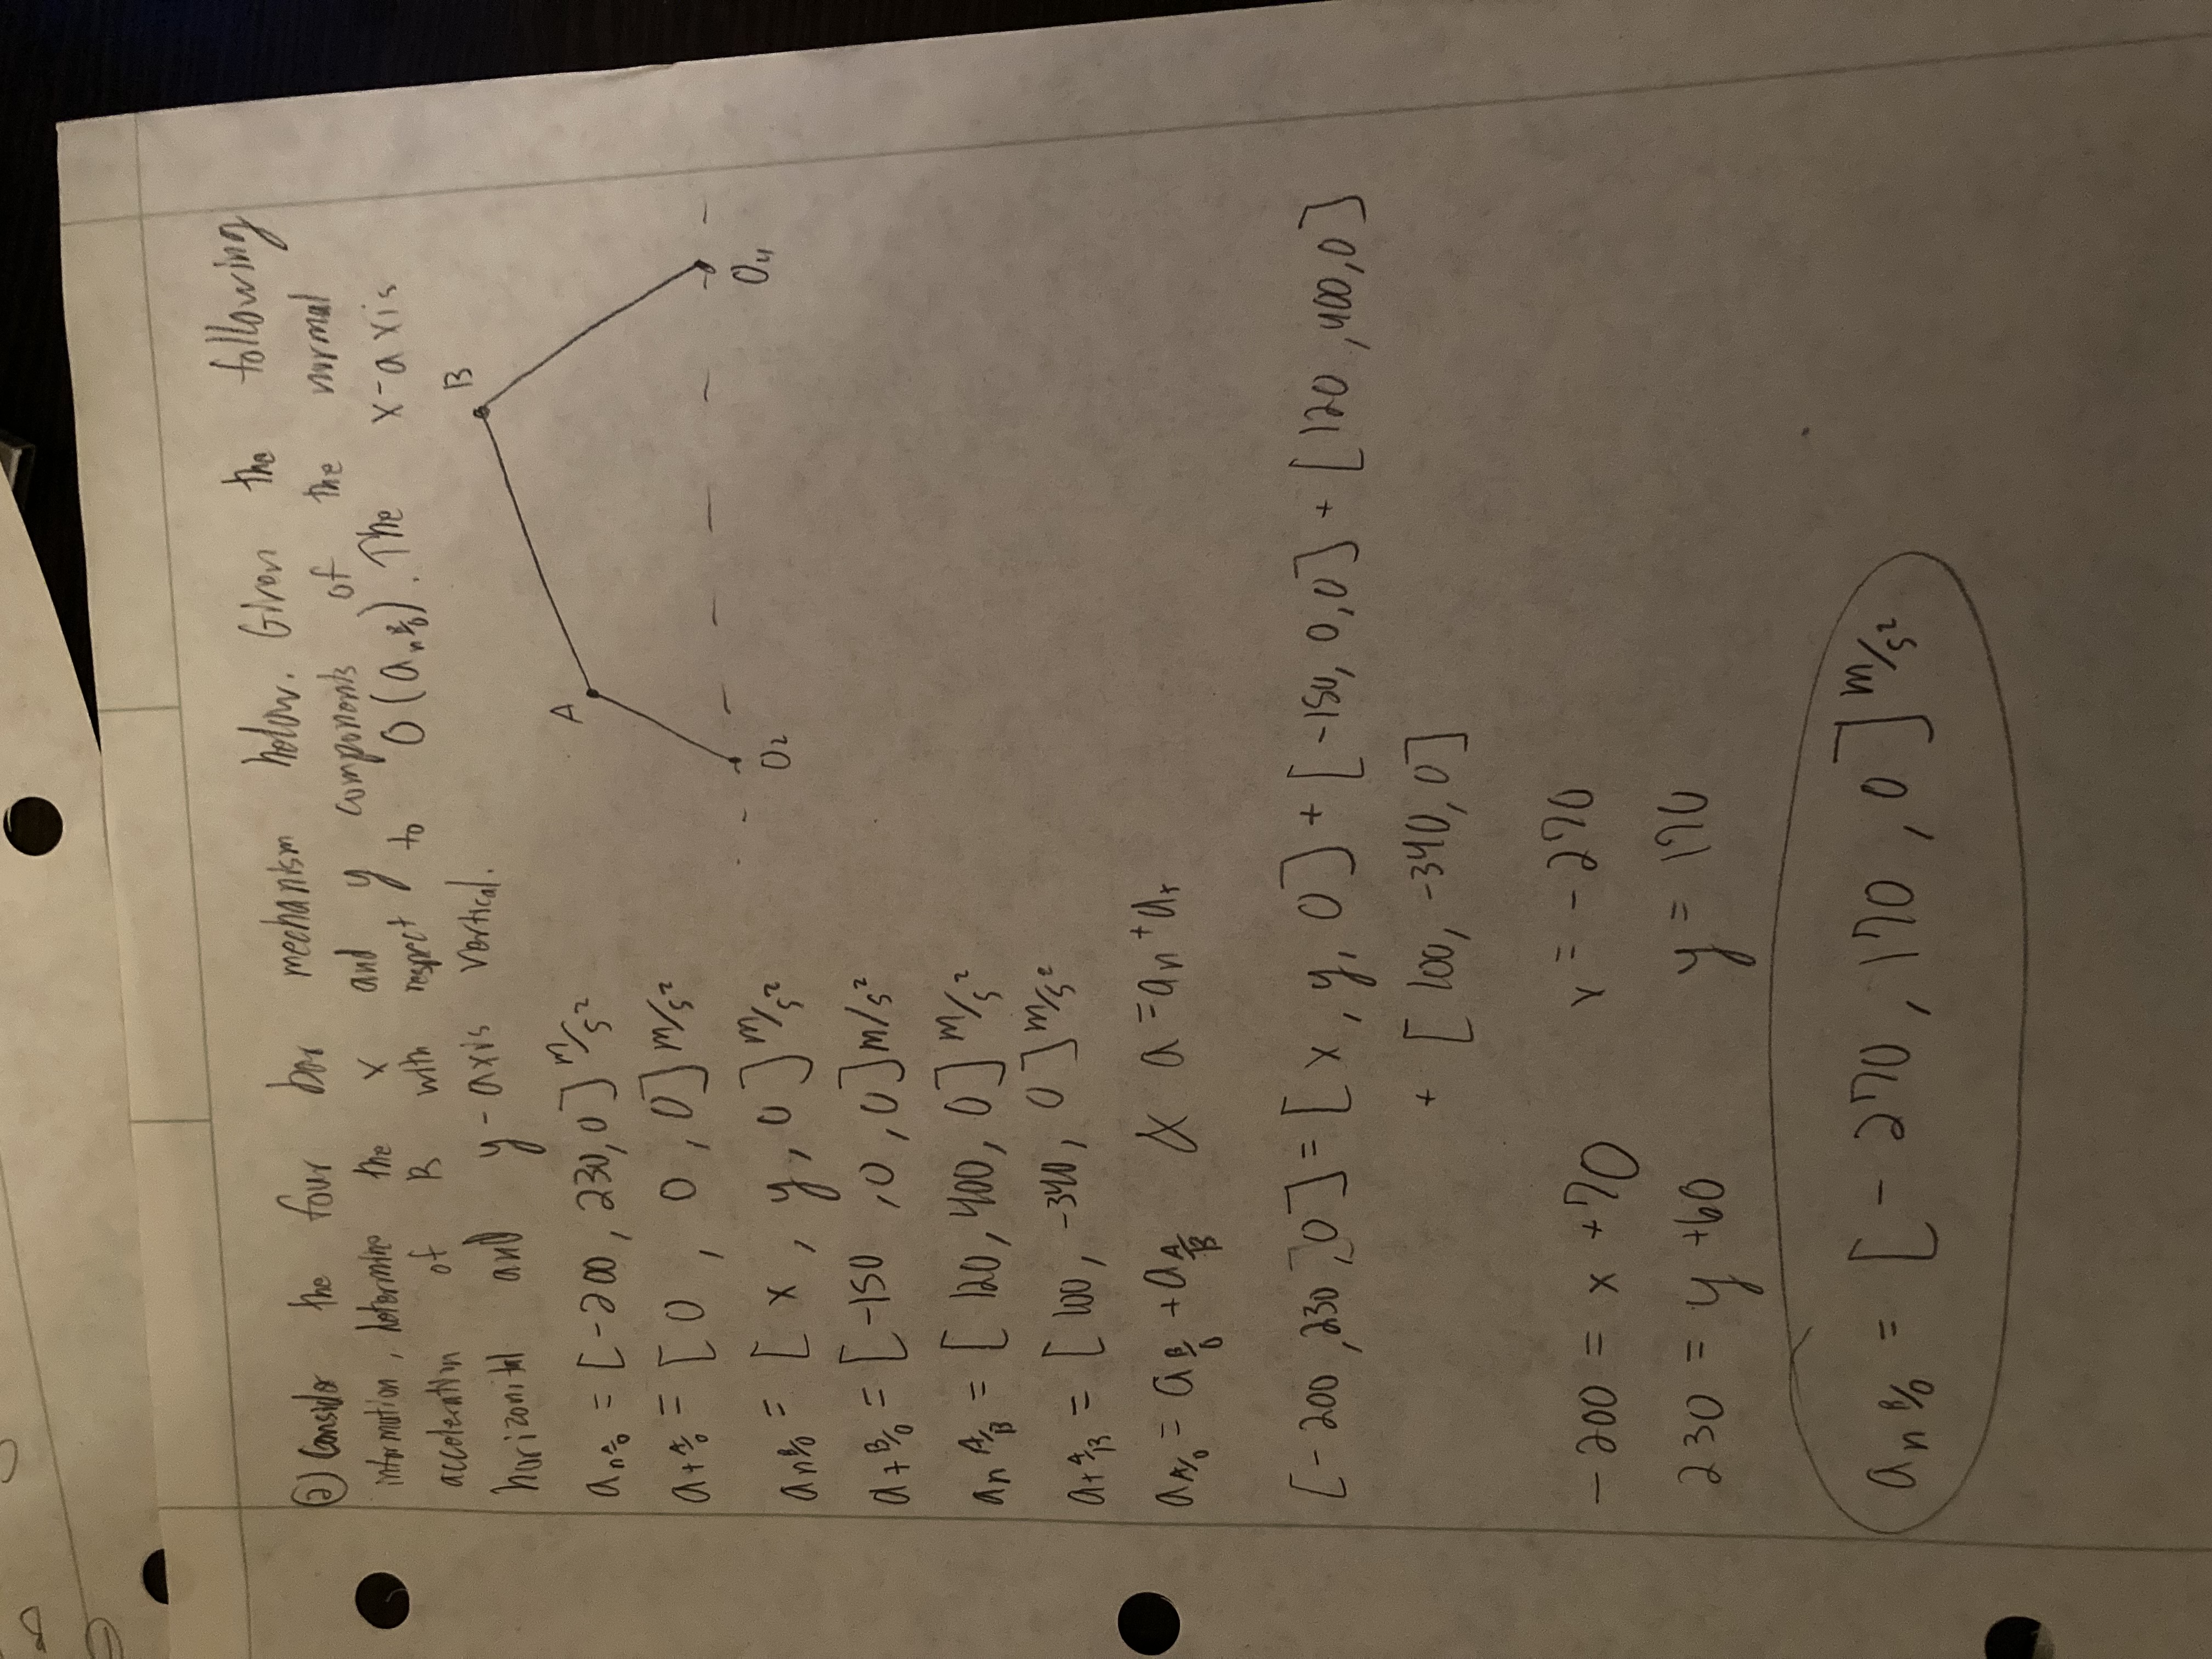 ② Consider the four bar mechanism below. Given the following
information, determine the x and y components of the normal
acceleration of B with respect to O (a_n B/O). The x-axis
horizonital and y-axis vertical.
B
A
O₂
O₄
a_n A/O = [-200, 230, 0] m/s²
a_t A/O = [0, 0, 0] m/s²
a_n B/O = [x, y, 0] m/s²
a_t B/O = [-150, 0, 0] m/s²
a_n A/B = [120, 400, 0] m/s²
a_t A/B = [100, -340, 0] m/s²
a A/O = a B/O + a A/B & a = a_n + a_t
[-200, 230, 0] = [x, y, 0] + [-150, 0, 0] + [120, 400, 0]
+ [100, -340, 0]
-200 = x + 70 x = -270
230 = y + 60 y = 170
a_n B/O = [-270, 170, 0] m/s²